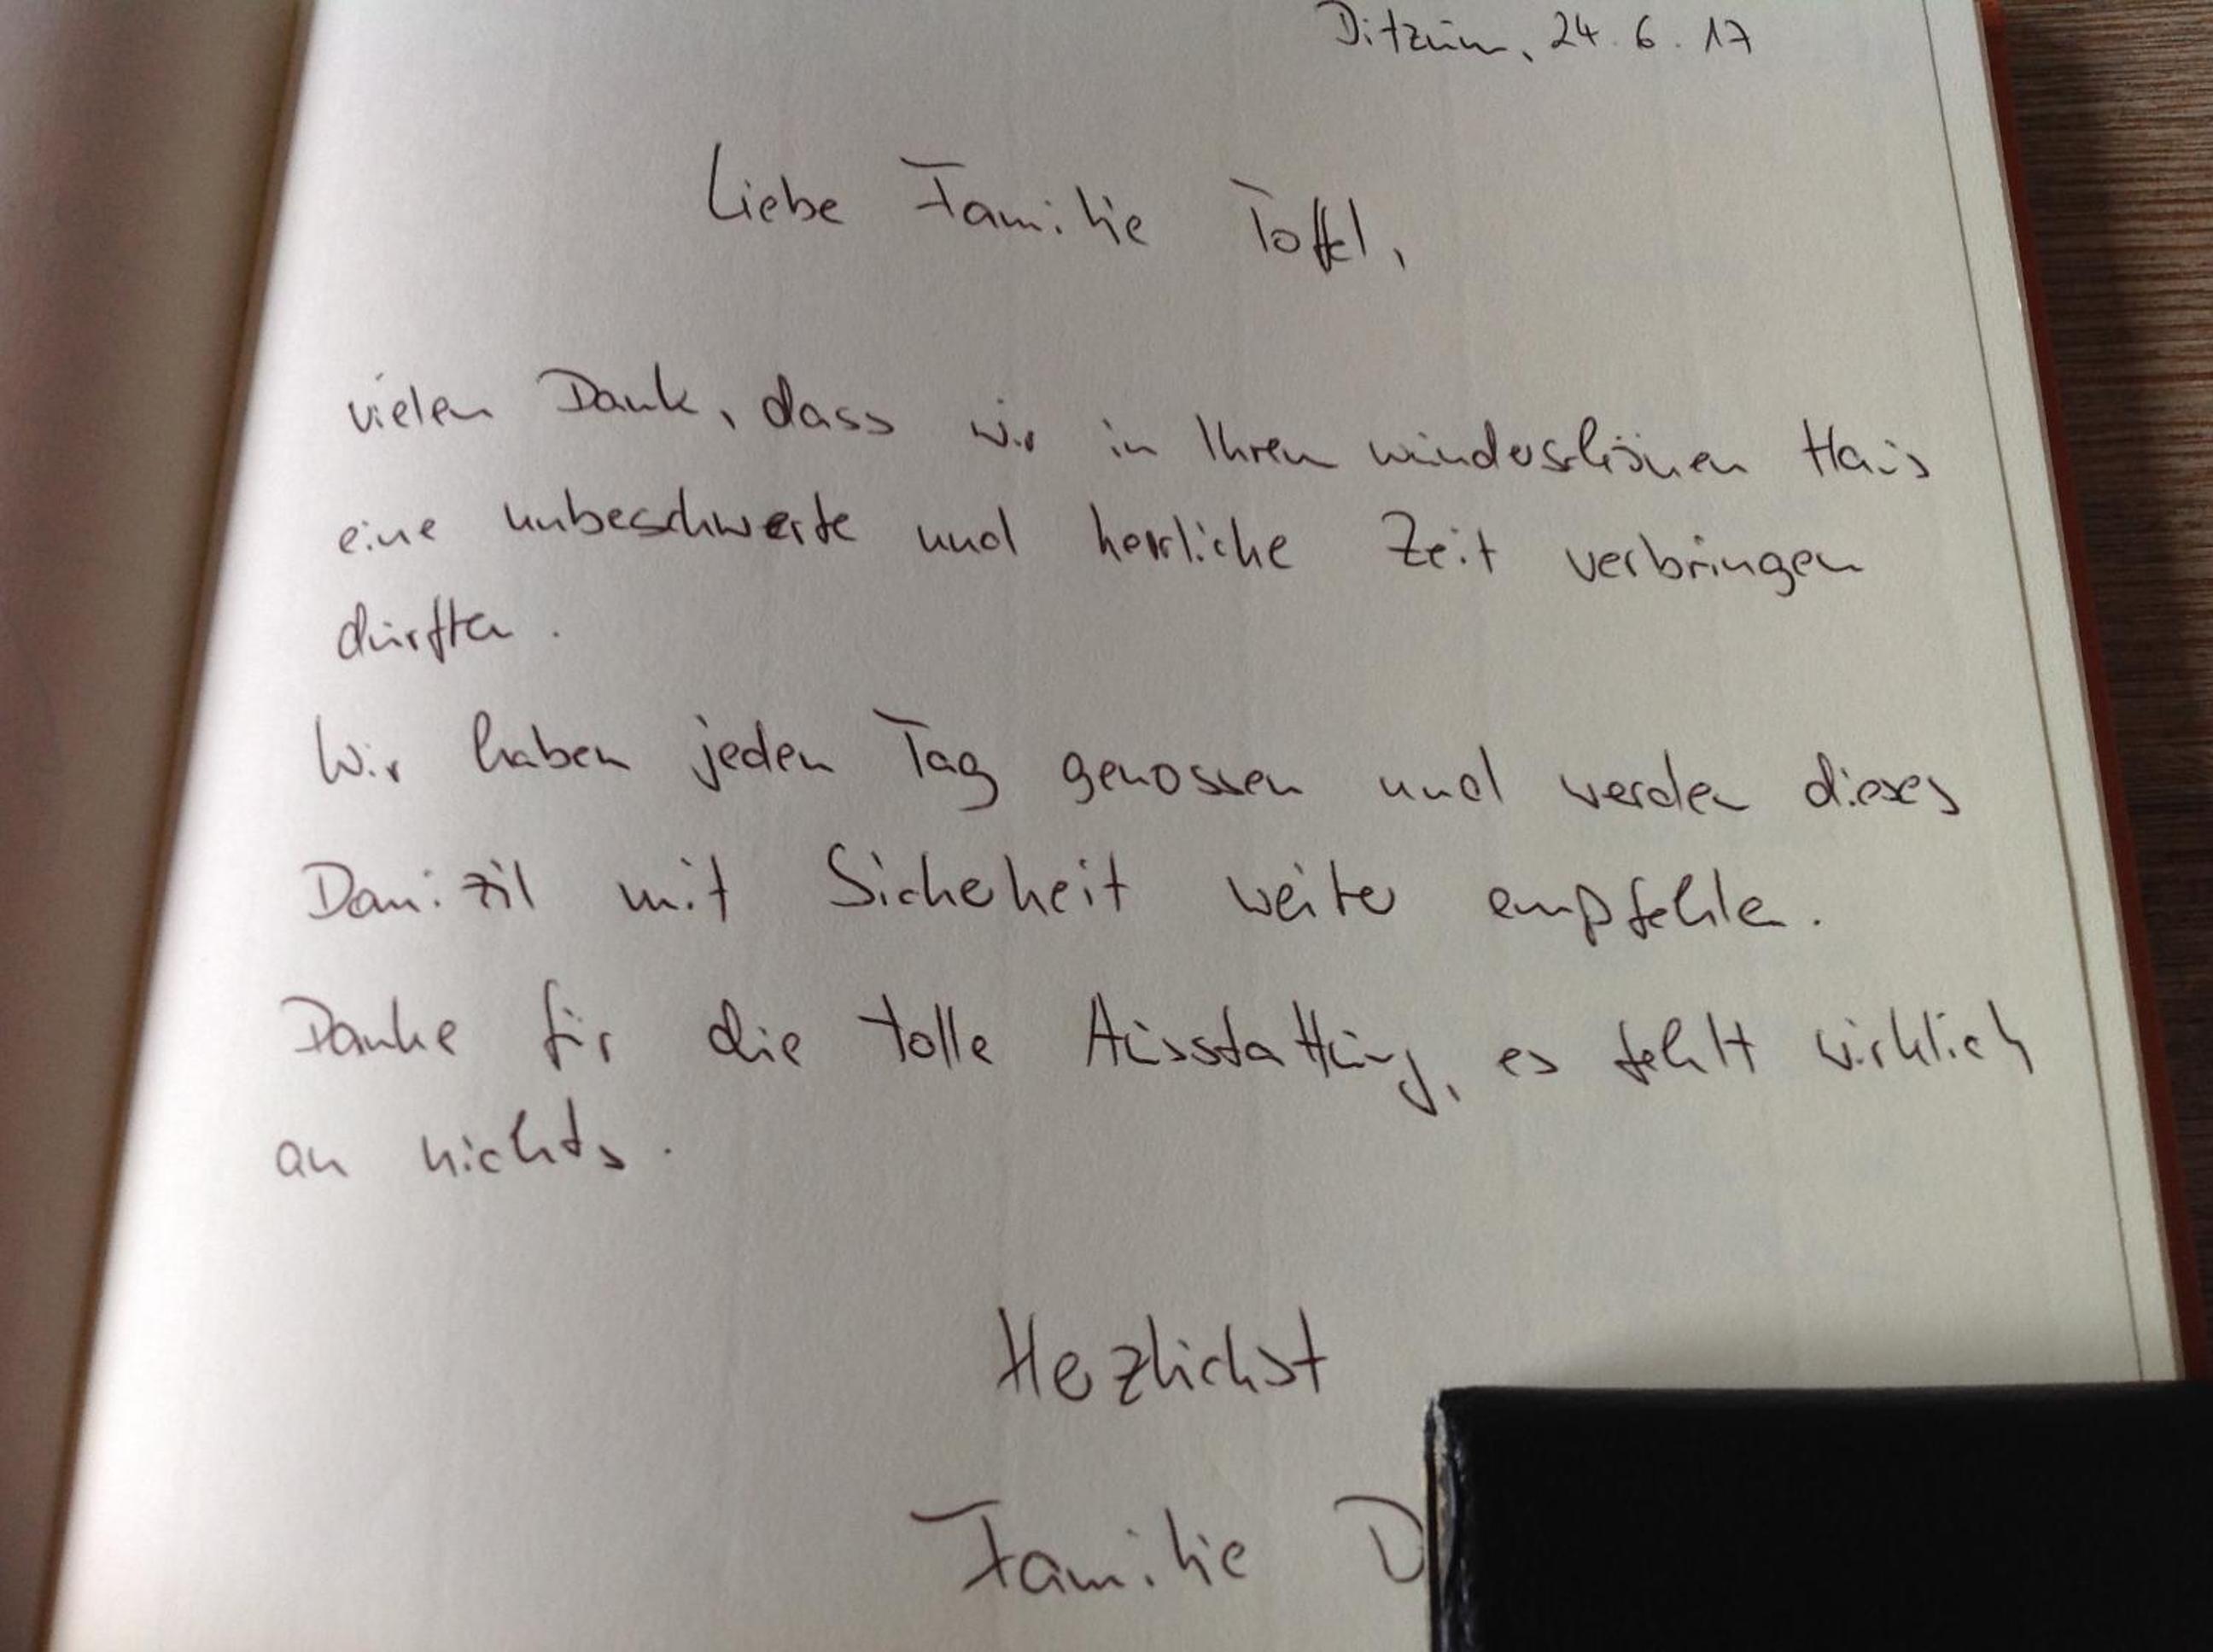 Ditzum, 24.6.17
Liebe Familie Toffel,
vielen Dank, dass wir in Ihren wunderschönen Haus
eine unbeschwerte und herrliche Zeit verbringen
durften.
Wir haben jeden Tag genossen und werden dieses
Domizil mit Sicherheit weiter empfehlen.
Danke für die tolle Ausstattung, es fehlt wirklich
an nichts.
Herzlichst
Familie D